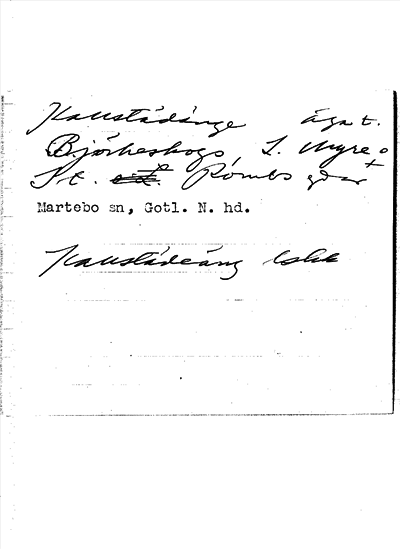 Kaustädänge äga t.
Björkeskogs, L. Myre o
St. Römbs gdar
Martebo sn, Gotl. N. hd.
Kaustädeäng